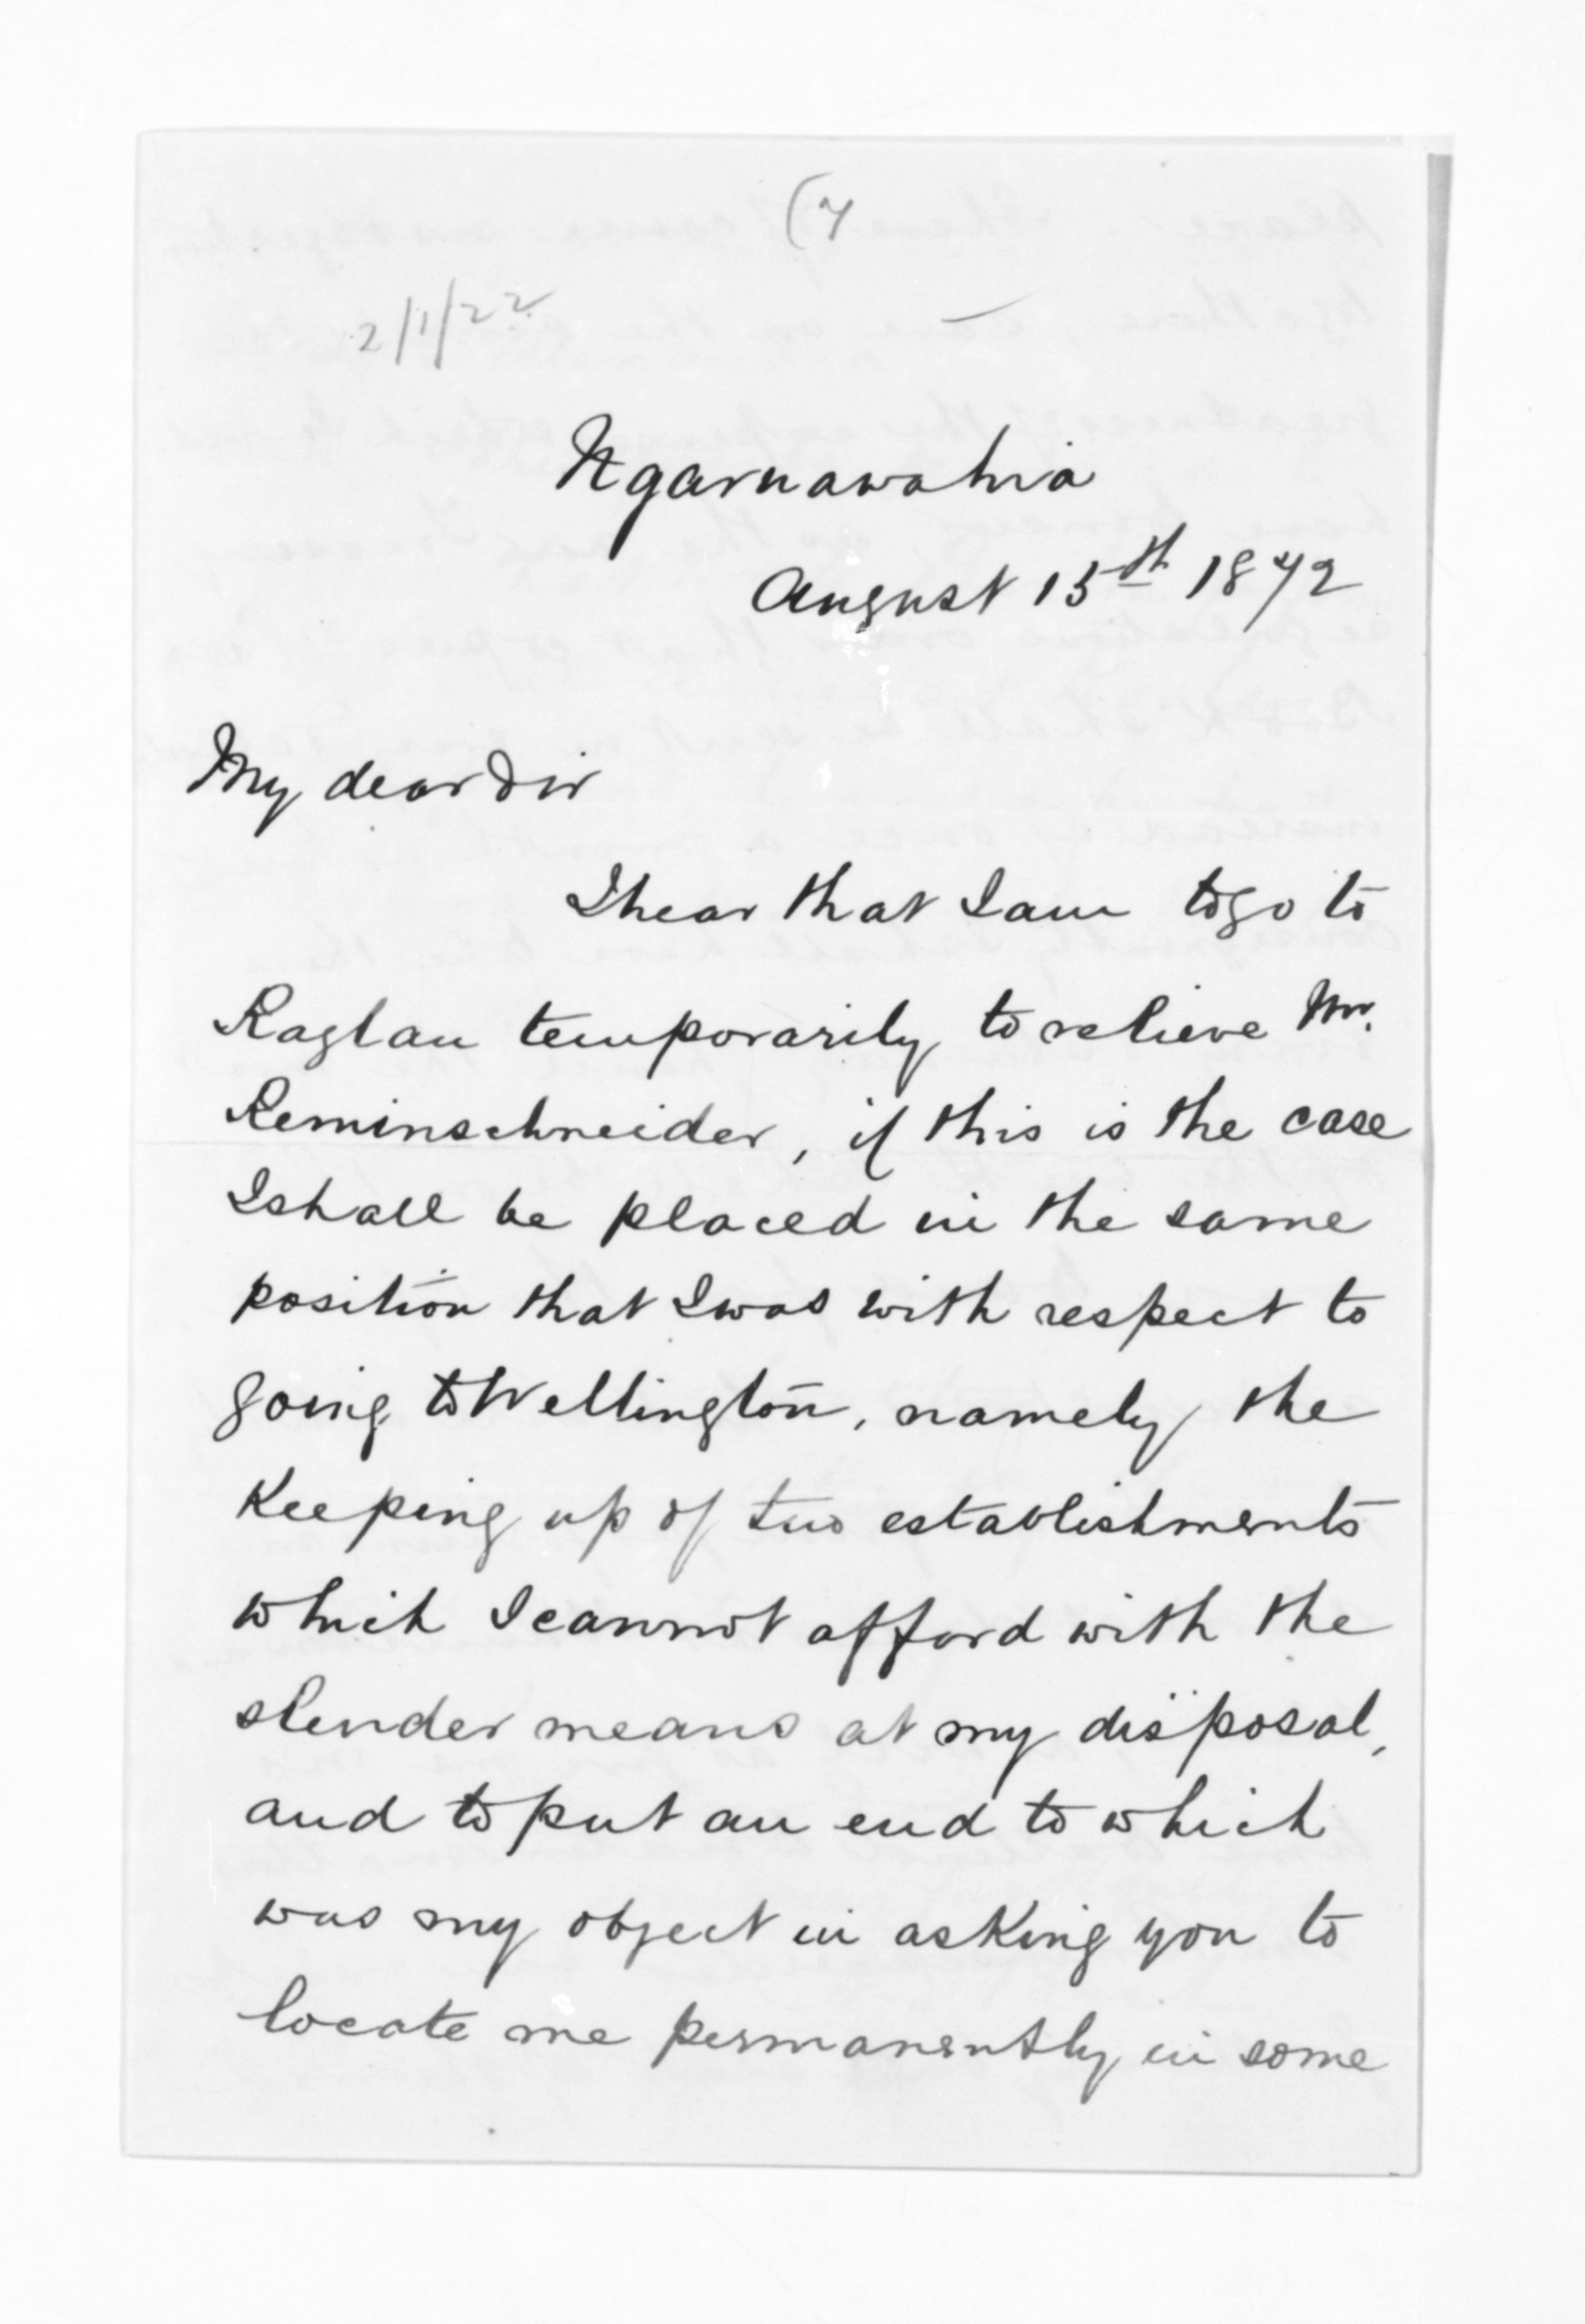 (7
2/1/22
Ngarnawahia
August 15th 1872
My dear Sir
I hear that I am to go to
Raglan temporarily, to relieve Mr.
Reminschneider, if this is the case
I shall be placed in the same
position that I was with respect to
going to Wellington, namely the
Keeping up of two establishments
which I cannot afford with the
slender means at my disposal,
and to put an end to which
was my object in asking you to
locate me permanently in some